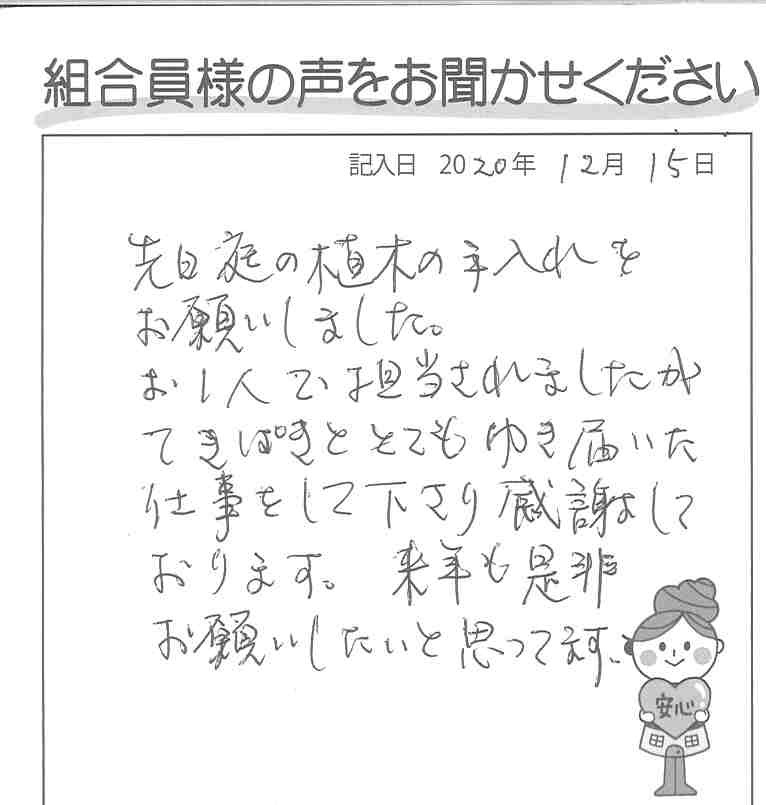 組合員様の声をお聞かせください
記入日 2020年 12月 15日
先日庭の植木の手入れを
お願いしました。
お1人で担当されましたが
てきぱきととてもゆき届いた
仕事をして下さり感謝して
おります。来年も是非
お願いしたいと思ってます。
安心